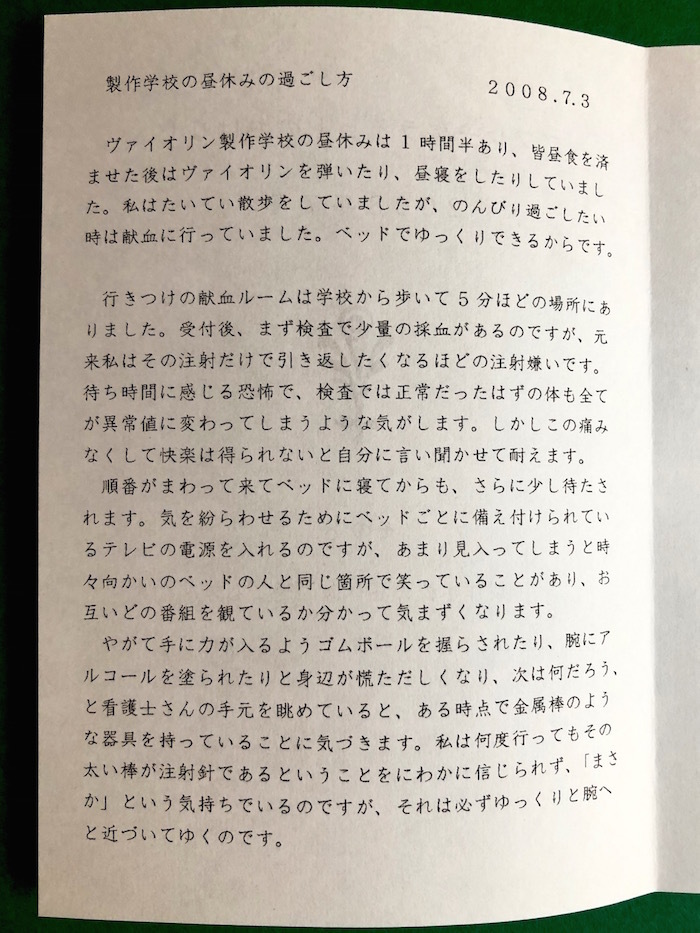 製作学校の昼休みの過ごし方
2008.7.3
ヴァイオリン製作学校の昼休みは1時間半あり、皆昼食を済
ませた後はヴァイオリンを弾いたり、昼寝をしたりしていまし
た。私はたいてい散歩をしていましたが、のんびり過ごしたい
時は献血に行っていました。ベッドでゆっくりできるからです。
行きつけの献血ルームは学校から歩いて5分ほどの場所にあ
りました。受付後、まず検査で少量の採血があるのですが、元
来私はその注射だけで引き返したくなるほどの注射嫌いです。
待ち時間に感じる恐怖で、検査では正常だったはずの体も全て
が異常値に変わってしまうような気がします。しかしこの痛み
なくして快楽は得られないと自分に言い聞かせて耐えます。
順番がまわって来てベッドに寝てからも、さらに少し待たさ
れます。気を紛らわせるためにベッドごとに備え付けられてい
るテレビの電源を入れるのですが、あまり見入ってしまうと時
々向かいのベッドの人と同じ箇所で笑っていることがあり、お
互いどの番組を観ているか分かって気まずくなります。
やがて手に力が入るようゴムボールを握らされたり、腕にア
ルコールを塗られたりと身辺が慌ただしくなり、次は何だろう、
と看護士さんの手元を眺めていると、ある時点で金属棒のよう
な器具を持っていることに気づきます。私は何度行ってもその
太い棒が注射針であるということをにわかに信じられず、「まさ
か」という気持ちでいるのですが、それは必ずゆっくりと腕へ
と近づいてゆくのです。